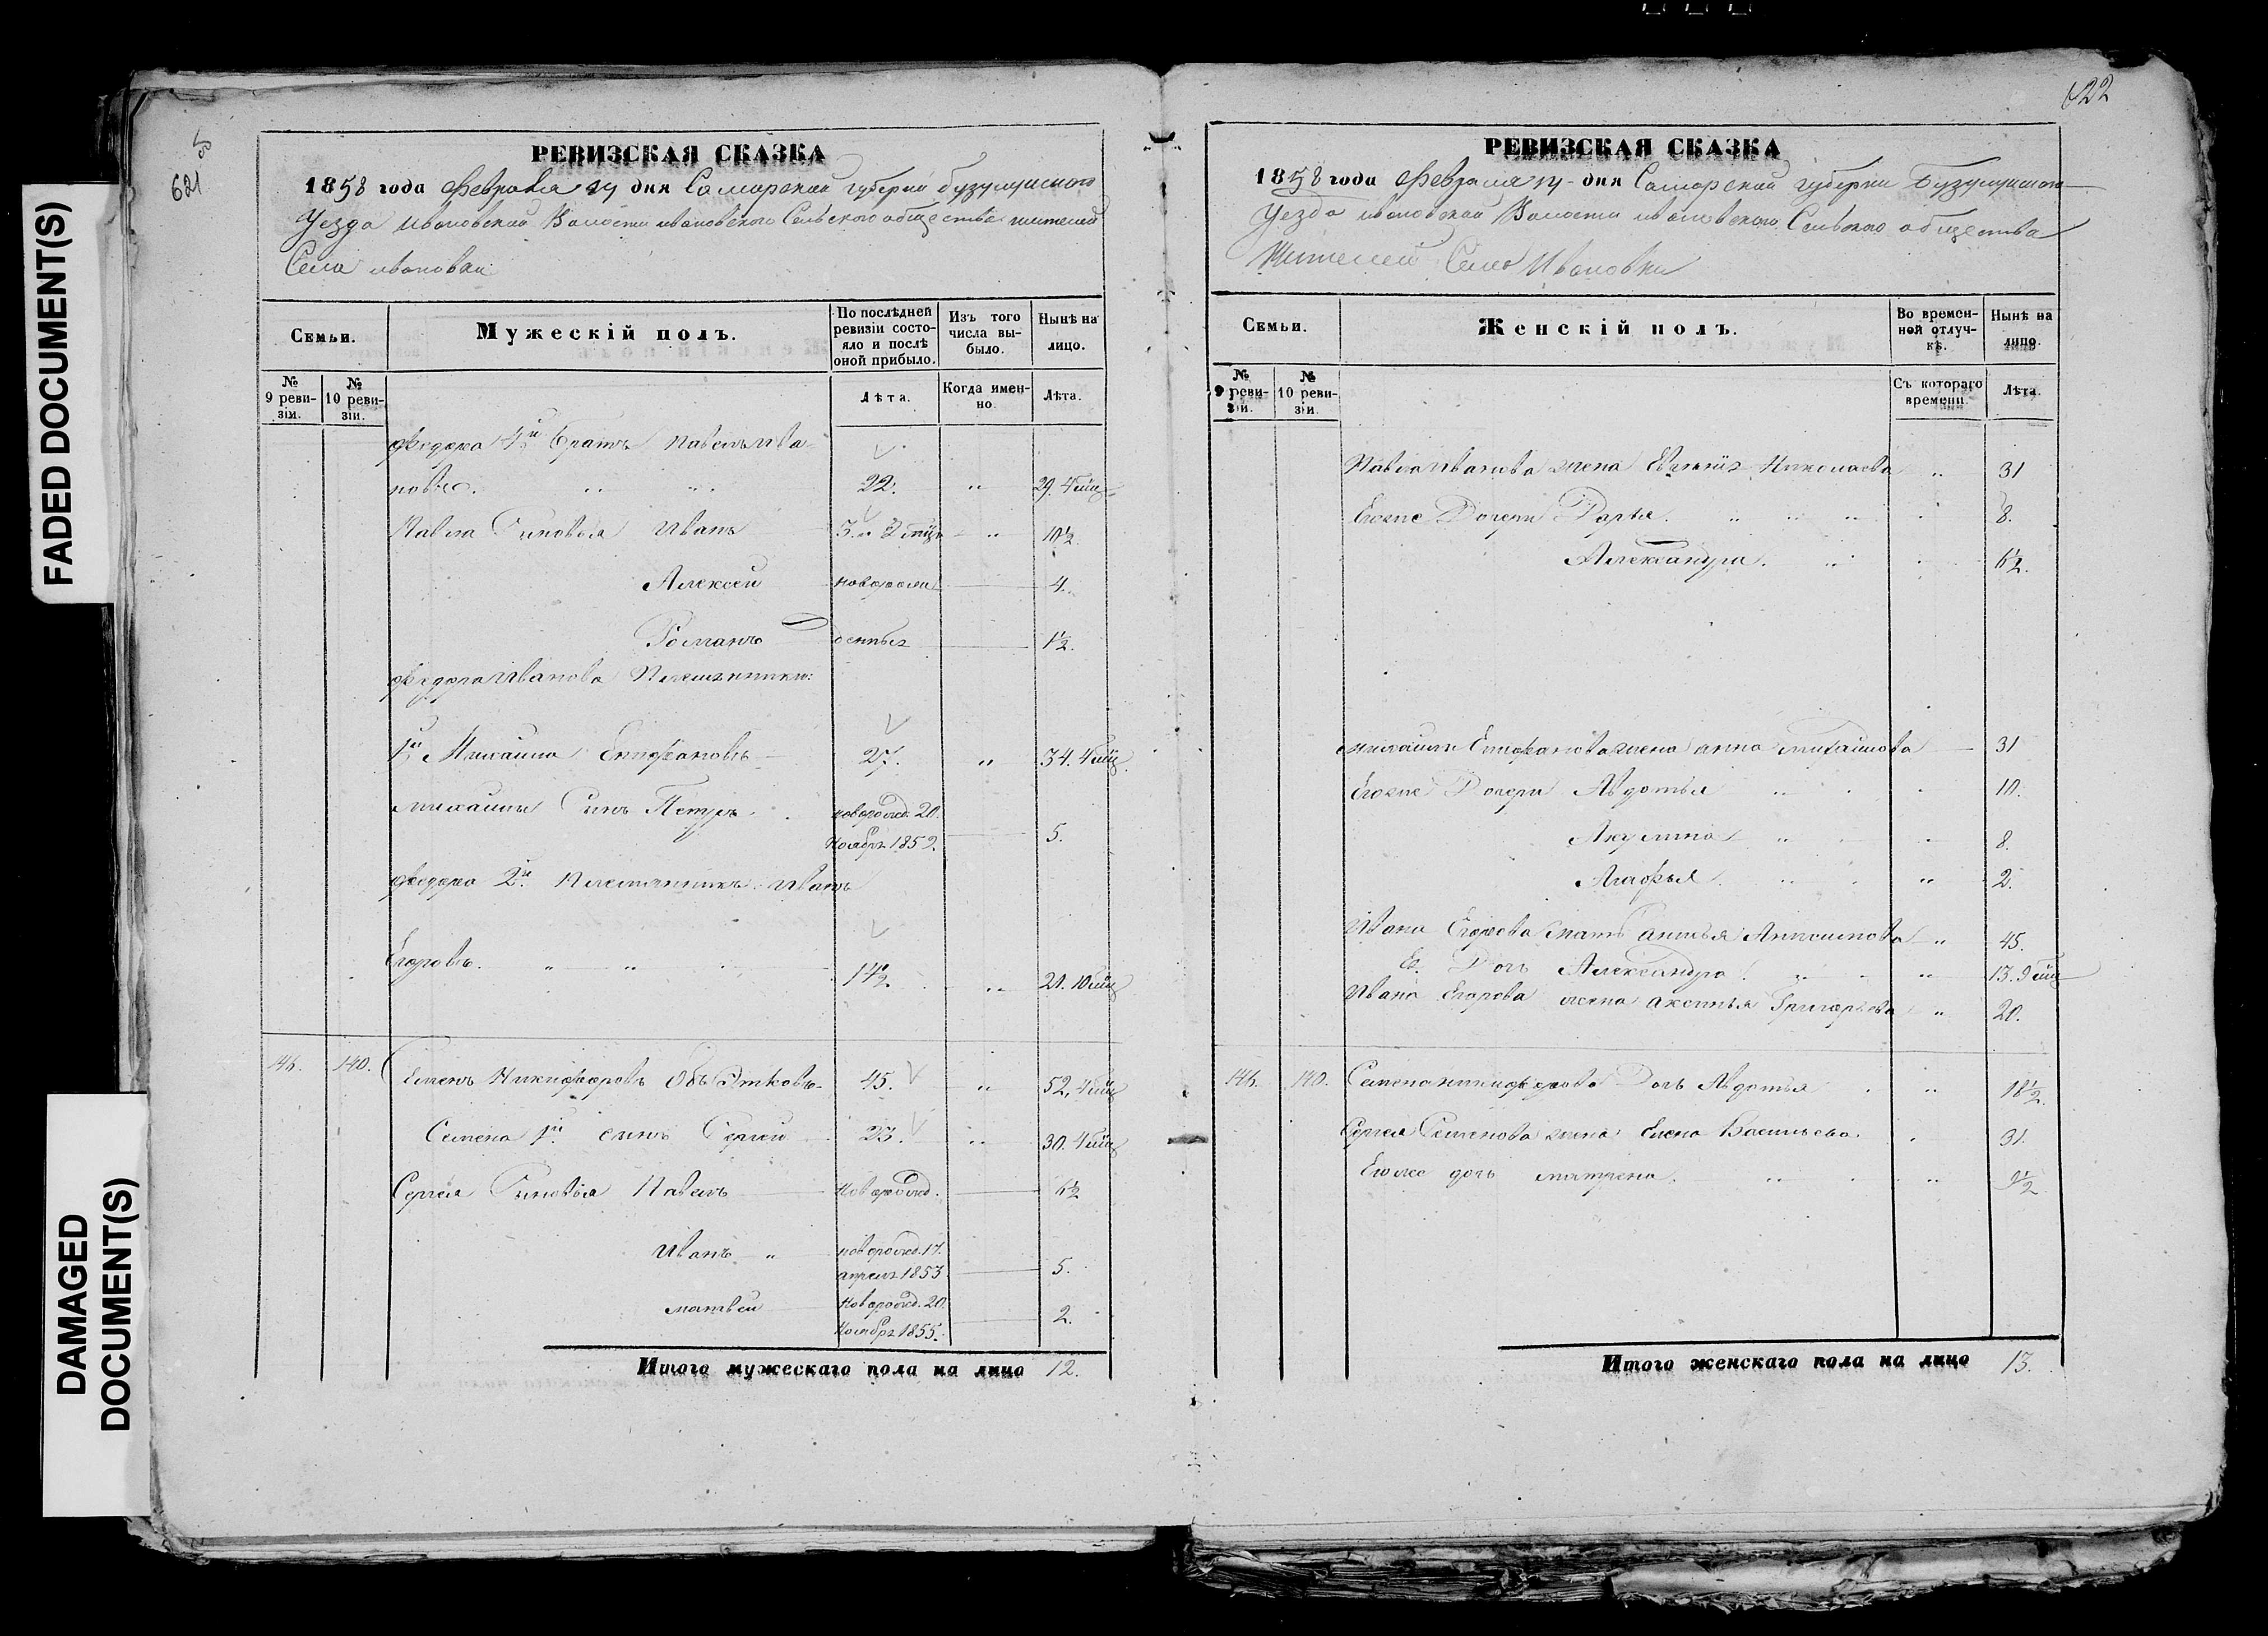 FADED DOCUMENT(S)
DAMAGED
DOCUMENT(S)
621
РЕВИЗСКАЯ СКАЗКА
1858 года февраля 14 дня Самарской губерни бузулуцкого
Уезда ивановской Волости ивановского Сельского общества жителей
Села ивановки
Семьи.
Мужескій полъ.
По послѣдней
ревизіи состо-
яло и послѣ
оной прибыло.
Изъ того
числа вы-
было.
Нынѣ на
лицо.
№
9 реви-
зіи.
№
10 реви-
зіи.
Лѣта.
Когда имен-
но.
Лѣта.
федора 4й братъ Павелъ ива-
новъ. 22. " 29. 4 мц
Павла Сыновья Иванъ 3. 2 мца " 10½
Алексей новорожд 4.
Романъ 1½.
федора Иванова Племянники:
1й Михаила Епифановъ 27. " 34. 4 мц.
михаилы Сынъ Петръ новорожд. 20.
Ноября 1852. 5.
федора 2й Племянникъ Иванъ
Егоровъ. " " 14½ " 21. 10 мц
146. 140. Семенъ Никифоровъ 45. " 52, 4 мц
Семена 1й сынъ Сергей 23. " 30. 4 мц
Сергея Сыновья Павелъ Новорожд. 6½
Иванъ " новорожд. 17.
апреля 1853 5.
матвей Новорожд. 20.
Ноября 1855. 2.
Итого мужескаго пола на лицо 12.
622
РЕВИЗСКАЯ СКАЗКА
1858 года февраля 14 дня Самарской губерни Бузулуцкого
Уезда ивановской Волости ивановского Сельского общества
Жителей Села Ивановки
Семьи.
Женскій полъ.
Во времен-
ной отлуч-
кѣ.
Нынѣ на
лицо.
№
9 реви-
зіи.
№
10 реви-
зіи.
Съ котораго
времени.
Лѣта.
Павла Иванова жена Николаева " 31
Егоже Дочери Дарья. " " " 8.
Александра. " 6½.
михаилы Епифанова жена анна михайлова 31
Егоже Дочери Авдотья " 10.
Акулина " 8.
Агафья. " " 2.
Ивана Егорова мать Анисимова " 45.
Ея Дочь Александра. " " 13. 9 мц
Ивана Егорова жена аксинья Григорьева " 20.
146. 140. Семена никифорова Дочь Авдотья " 18½.
Сергея Семенова жена Елена Васильева. 31.
Егоже дочь матрена. " " 9½
Итого женскаго пола на лицо 13.